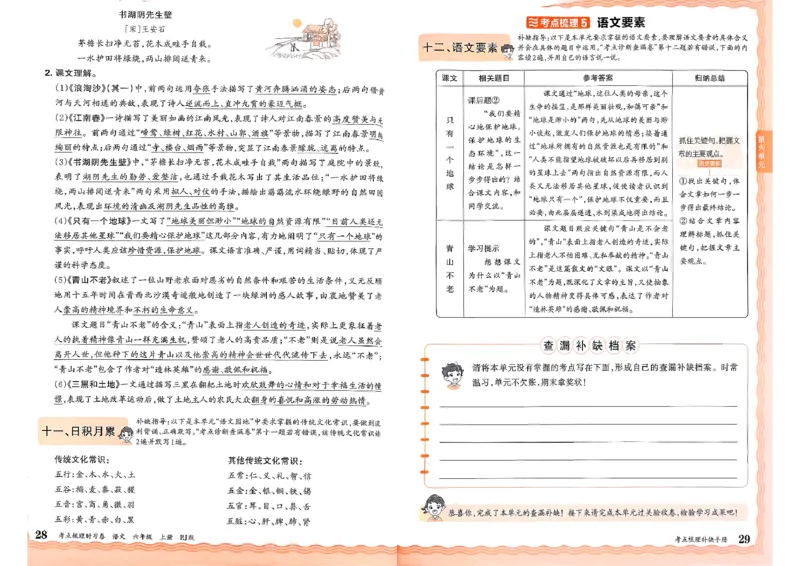 书湖阴先生壁
[宋]王安石
茅檐长扫净无苔,花木成畦手自栽。
一水护田将绿绕,两山排闼送青来。
2. 课文理解。
(1)《浪淘沙》(其一)中,前两句运用夸张手法描写了黄河奔腾汹涌的姿态;后两句借黄
河与天河相通的典故,表现了诗人逆流而上、直冲九霄的豪迈气概。
(2)《江南春》一诗描写了美丽如画的江南风光,表现了诗人对江南春景的高度赞美与无
限神往。前两句通过“啼莺、绿树、红花、水村、山郭、酒旗”等景物,描写了江南春景明朗
绚丽的特点;后两句通过“寺、楼台、烟雨”等景物,突显了江南春景朦胧、迷离的特点。
(3)《书湖阴先生壁》中,“茅檐长扫净无苔,花木成畦手自栽”两句描写了庭院中的景致,
表明了湖阴先生的勤劳、爱整洁,也通过手栽花木写出了其生活品位;“一水护田将绿
绕,两山排闼送青来”两句采用拟人、对仗的手法,描绘出潺潺流水环绕绿野的自然田园
风光,表现出环境的清幽及湖阴先生品性的高雅。
(4)《只有一个地球》一文写了“地球美丽但渺小”“地球的自然资源有限”“目前人类还无
法移居其他星球”“我们要精心保护地球”这几部分内容,有力地阐明了“只有一个地球”的
事实,呼吁人类应该珍惜资源,保护地球。课文语言准确、严谨,用词精当、贴切,体现了严
谨的科学态度。
(5)《青山不老》叙述了一位山野老农面对恶劣的自然条件和艰苦的生活条件,义无反顾
地用十五年时间在晋西北沙漠奇迹般地创造了一块绿洲的感人故事,由衷地赞美了老
人崇高的精神境界和不朽的生命意义。
课文题目“青山不老”的含义:“青山”表面上指老人创造的奇迹,实际上更象征着老
人的执着精神像青山一样充满生机,赞颂了老人的高贵品质;“不老”则是说老人虽然会
离开人世,但他种下的这片青山以及他崇高的精神会世世代代流传下去,永远“不老”;
“青山不老”包含了作者对“造林英雄”的感谢、敬佩和祝福。
(6)《三黑和土地》一文通过描写三黑在翻耙土地时欢欣鼓舞的心情和对于幸福生活的憧
憬,表现了土地改革运动后,做了土地主人的农民大众翻身的喜悦和高涨的劳动热情。
十一、日积月累
补缺指导:以下是本单元“语文园地”中要求掌握的传统文化常识,要做到流
利背诵、正确默写。“考点诊断查漏卷”第十一题若有错误,该传统文化常识读
2遍并默写1遍。
传统文化常识:
五行:金、木、水、火、土
五谷:稻、麦、黍、菽、稷
五音:宫、商、角、徵、羽
五彩:黄、青、赤、白、黑
其他传统文化常识:
五常:仁、义、礼、智、信
五金:金、银、铜、铁、锡
五官:耳、目、口、鼻、舌
五脏:心、肝、脾、肺、肾
28 考点梳理时习卷 语文 六年级 上册 RJ版
考点梳理5 语文要素
十二、语文要素
补缺指导:以下是本单元要求掌握的语文要素,要理解语文要素的具体含义
并会在具体的题目中运用。“考点诊断查漏卷”第十二题若有错误,下面的内
容读2遍,并用自己的语言说一说。
课文 相关题目 参考答案 归纳总结
只有一个地球
课后题②
“我们要精
心地保护地球,
保护地球的生
态环境”,这一
结论是怎样一
步步得出的?结
合课文内容,和
同学交流。
课文通过“地球,这位人类的母亲,这个
生命的摇篮,是那样美丽壮观,和蔼可亲”和
“地球是渺小的”两句,先从地球的美丽与渺
小说起,激发人们保护地球的情感;接着通
过“地球所拥有的自然资源也是有限的”和
“人类不能指望地球被破坏以后再移居到别
的星球上去”两句指出自然资源有限,而人
类又无法移居其他星球,促使读者认识到
“地球只有一个”,保护地球不仅重要,而且
必要,由此层层递进,水到渠成地得出结论。
青山不老
学习提示
想想课文
为什么以“青山
不老”为题。
课文题目照应关键句“青山是不会老
的”,“青山”表面上指老人创造的奇迹,实际
上指老人不怕困难、无私奉献的精神,“青山
不老”是这篇散文的“文眼”。课文以“青山
不老”为题,既深化了文章的主旨,又使抽象
的人物精神变得具体可感,表达了作者对
“造林英雄”的感谢、敬佩和祝福。
抓住关键句,把握文
章的主要观点。
语文要素
①找出关键句,体
会文章如何一步一
步得出最终结论。
②结合文章内容
理解标题,抓住关
键句,把握文章主
要观点。
第六单元
查漏补缺档案
请将本单元没有掌握的考点写在下面,形成自己的查漏补缺档案。时常
温习,单元不欠账,期末拿奖状!
恭喜你,完成了本单元的查漏补缺!接下来请完成本单元过关验收卷,检验学习成果吧!
考点梳理补缺手册 29